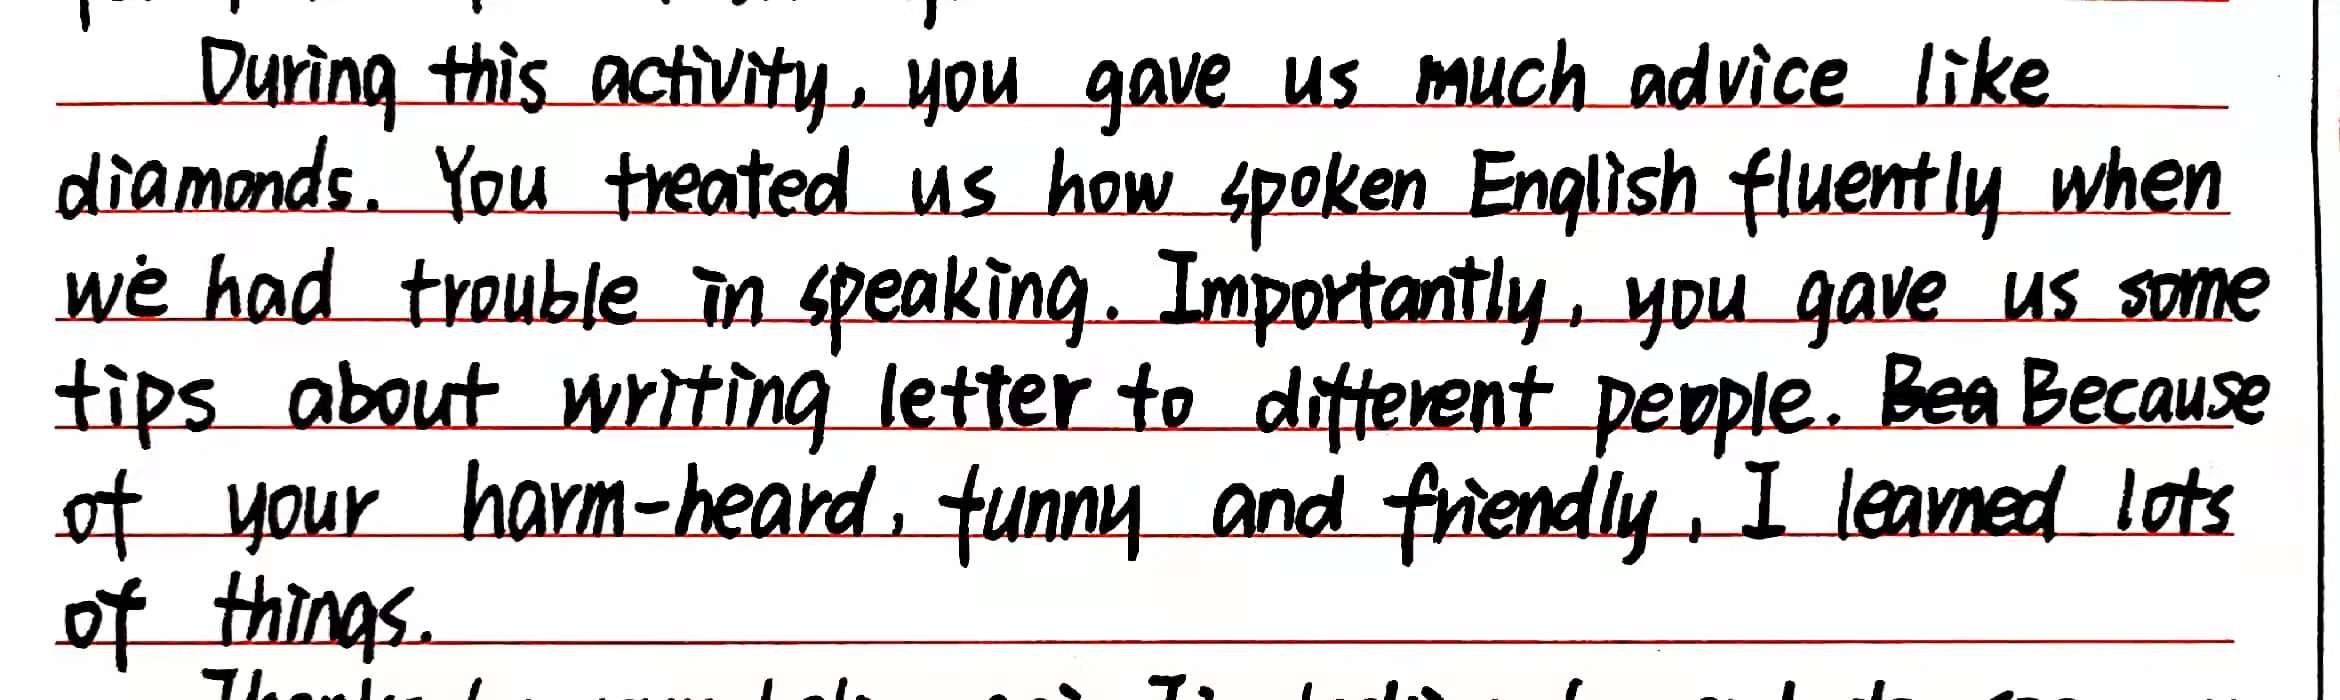 During this activity, you gave us much advice like
diamonds. You treated us how spoken English fluently when
we had trouble in speaking. Importantly, you gave us some
tips about writing letter to different people. Bea Because
of your harm-heard, funny and friendly, I learned lots
of things.